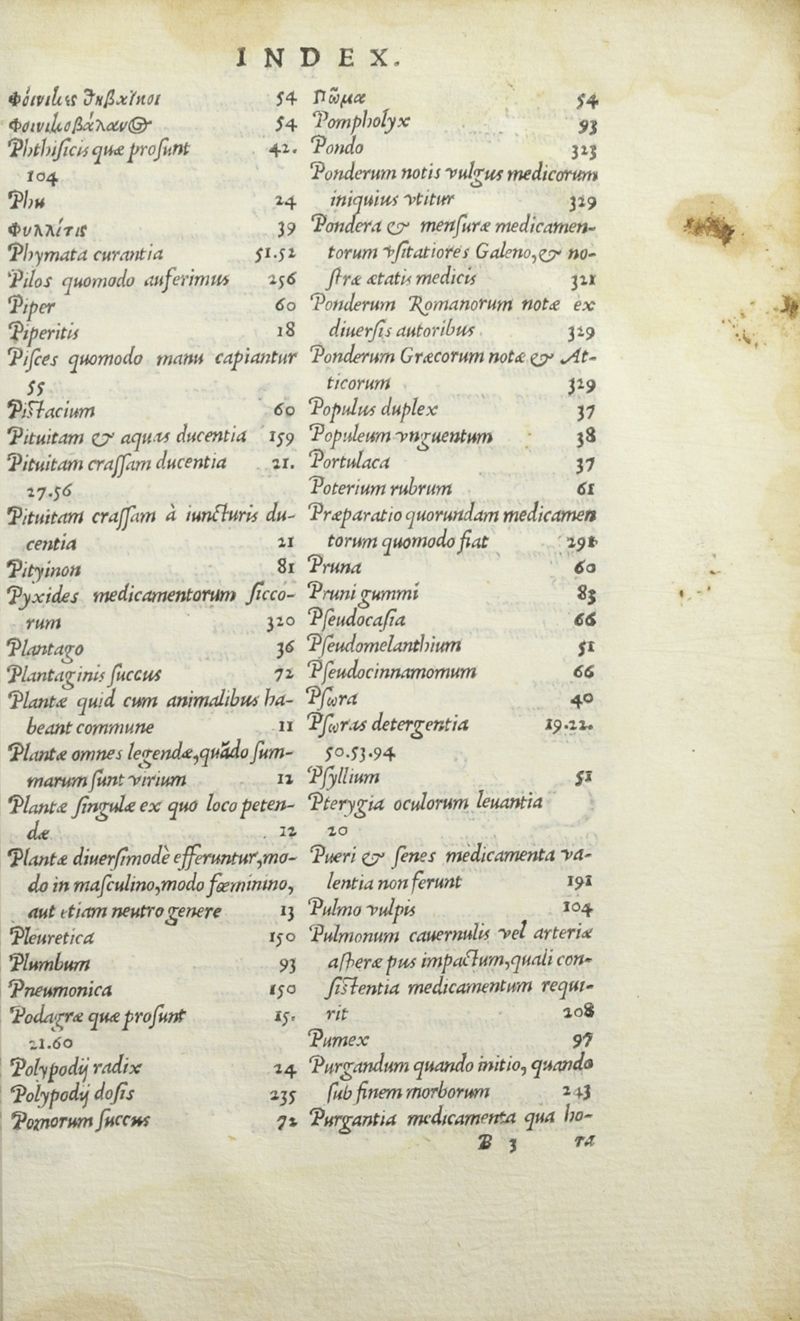 INDEX.
Φοίνικες θηβαϊκοὶ 54
Φοινικοβάλανος 54
Phthiſicis quæ proſunt 42.
104
Phu 24
Φυλλίτις 39
Phymata curantia 51.52
Pilos quomodo auferimus 256
Piper 60
Piperitis 18
Piſces quomodo manu capiantur
55
Piſtacium 60
Pituitam & aquas ducentia 159
Pituitam craſſam ducentia 21.
27.56
Pituitam craſſam à iuncturis du-
centia 21
Pityinon 81
Pyxides medicamentorum ſicco-
rum 320
Plantago 36
Plantaginis ſuccus 72
Plantæ quid cum animalibus ha-
beant commune 11
Plantæ omnes legendæ,quãdo ſum-
marum ſunt virium 12
Plantæ ſingulæ ex quo loco peten-
dæ 12
Plantæ diuerſimodè efferuntur,mo-
do in maſculino,modo fœminino,
aut etiam neutro genere 13
Pleuretica 150
Plumbum 93
Pneumonica 150
Podagræ quæ proſunt 15.
21.60
Polypodij radix 24
Polypodij doſis 235
Pomorum ſuccus 72
Πῶμα 54
Pompholyx 93
Pondo 323
Ponderum notis vulgus medicorum
iniquius vtitur 329
Pondera & menſuræ medicamen-
torum vſitatiores Galeno,& no-
ſtræ ætatis medicis 321
Ponderum Romanorum notæ ex
diuerſis autoribus 329
Ponderum Græcorum notæ & At-
ticorum 329
Populus duplex 37
Populeum vnguentum 38
Portulaca 37
Poterium rubrum 61
Præparatio quorundam medicamen
torum quomodo fiat 291
Pruna 60
Pruni gummi 83
Pſeudocaſia 66
Pſeudomelanthium 51
Pſeudocinnamomum 66
Pſωra 40
Pſωras detergentia 19.22.
50.53.94
Pſyllium 51
Pterygia oculorum leuantia
20
Pueri & ſenes medicamenta va-
lentia non ferunt 191
Pulmo vulpis 104
Pulmonum cauernulis vel arteriæ
aſperæ pus impactum,quali con-
ſiſtentia medicamentum requi-
rit 208
Pumex 97
Purgandum quando initio, quando
ſub finem morborum 243
Purgantia medicamenta qua ho-
B 3 ra